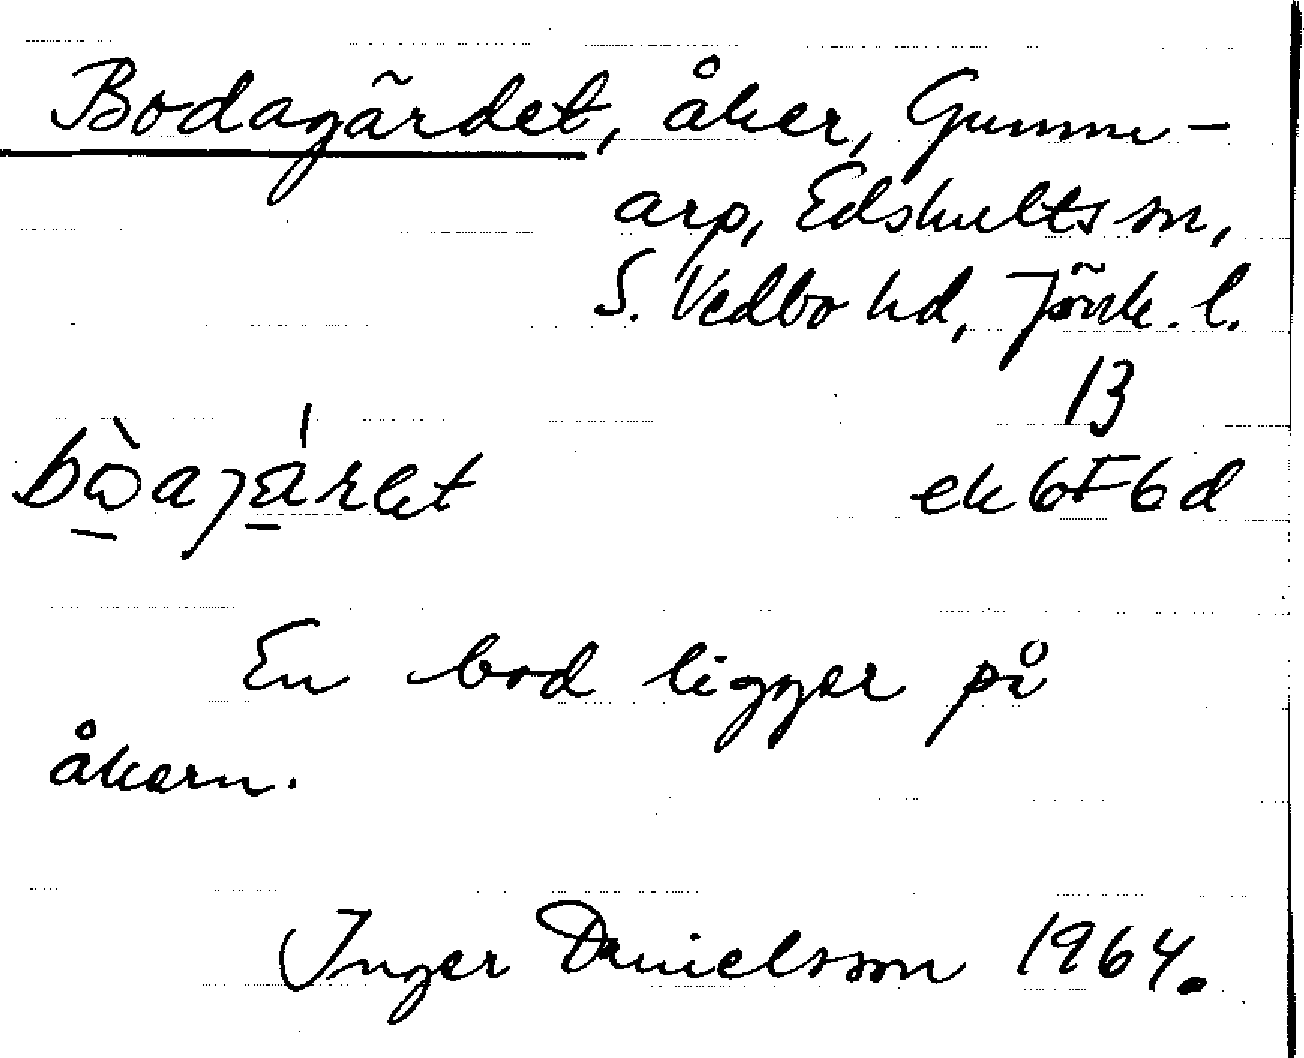 Bodagärdet, åker, Gumm-
arp, Edshults sn,
S. Vedbo hd, Jönk. l.
13
ek 6F6d
En bod ligger på
åkern.
Inger Danielsson 1964.